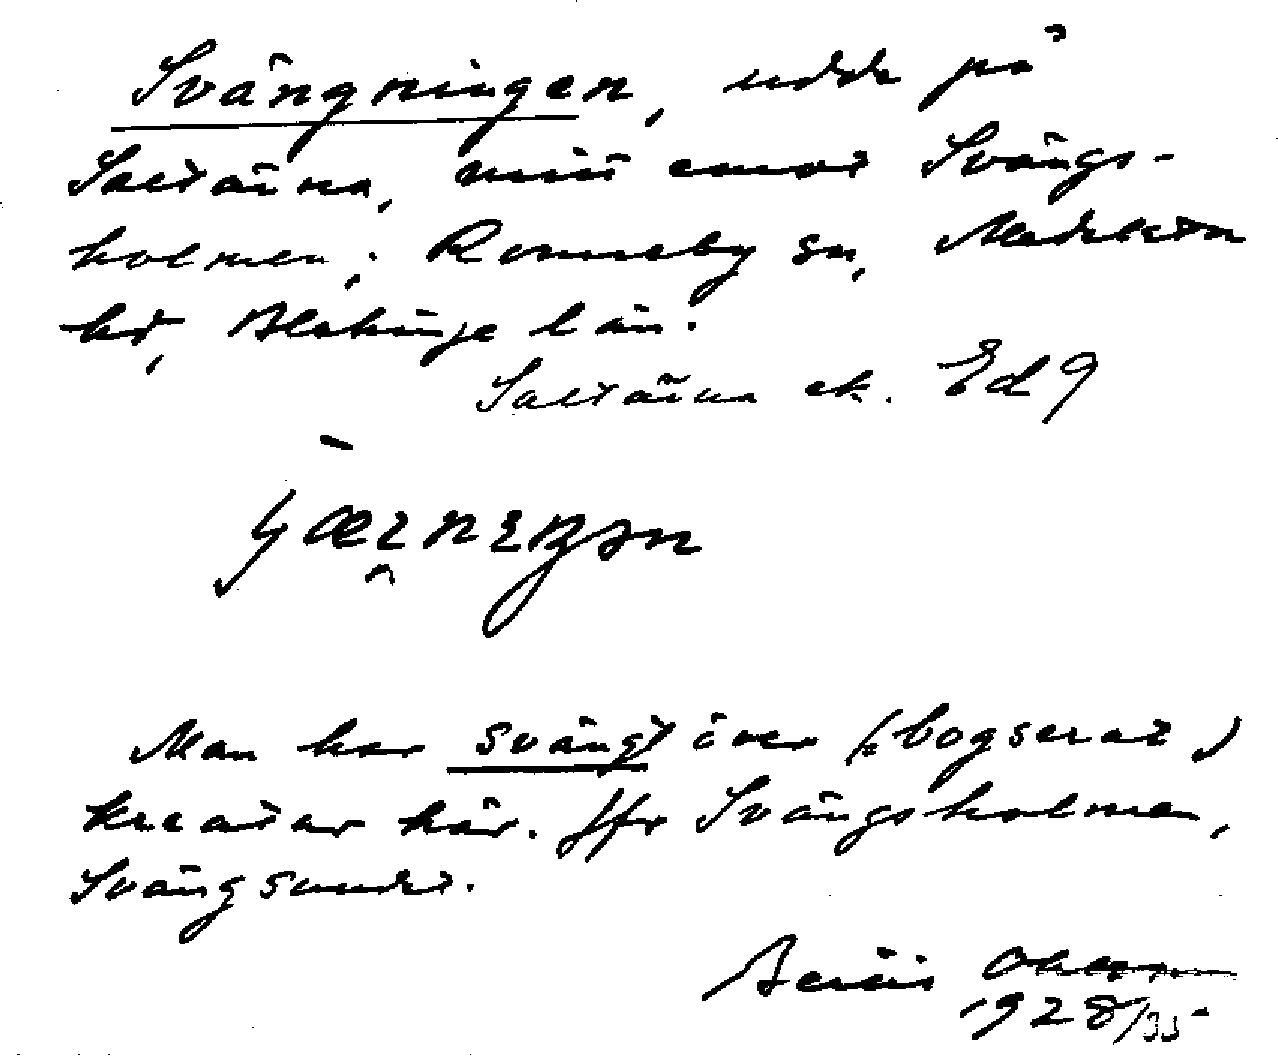 Svängningen, udde på
Saltärna, mitt emot Svängs-
holmen; Ronneby sn, Medelsta
hd, Blekinge län.
Saltärna ek. Ed 9
Man har svängt över (: bogserat)
kreatur här. Jfr Svängsholmen,
Svängsundet.
Ohlsson
1928/35